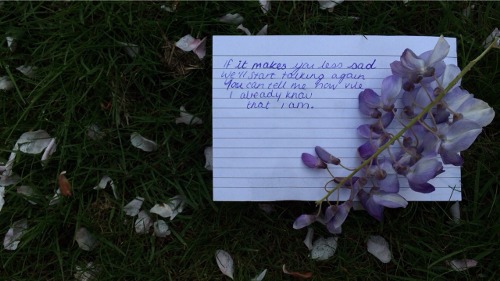 If it makes you less sad
We'll start talking again
You can tell me how vile
I already know
that i am.